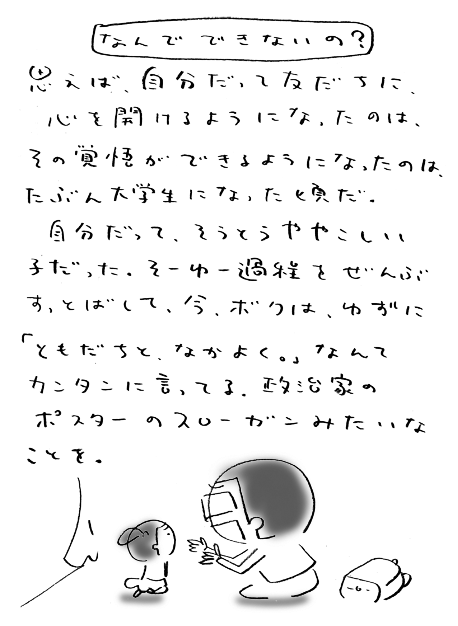 なんでできないの?
思えば、自分だって友だちに、
心を開けるようになったのは、
その覚悟ができるようになったのは、
たぶん大学生になった頃だ。
自分だって、そうとうややこしい
子だった。そーゆー過程をぜんぶ
すっとばして、今、ボクは、ゆずに
「ともだちと、なかよく。」なんて
カンタンに言ってる。政治家の
ポスターのスローガンみたいな
ことを。